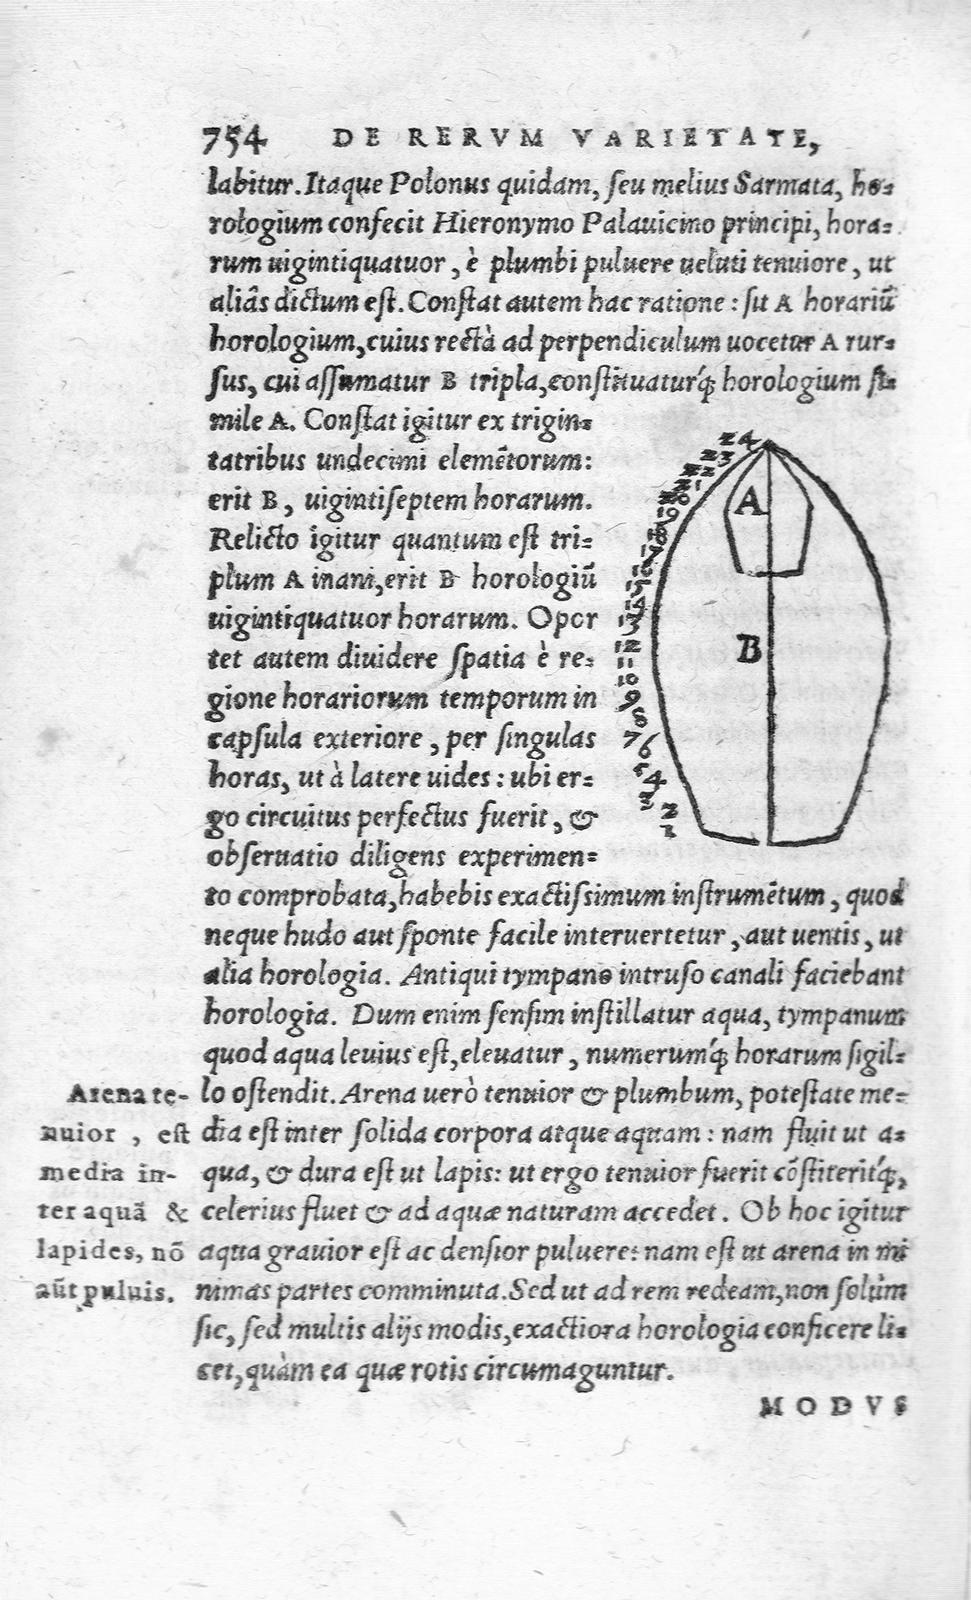 754 DE RERVM VARIETATE,
labitur. Itaque Polonus quidam, ſeu melius Sarmata, ho-
rologium confecit Hieronymo Palauicino principi, hora-
rum uigintiquatuor, è plumbi puluere ueluti tenuiore, ut
aliâs dictum eſt. Conſtat autem hac ratione: ſit A horariũ
horologium, cuius rectà ad perpendiculum uocetur A rur-
ſus, cui aſſumatur B tripla, conſtituaturq́; horologium ſi-
mile A. Conſtat igitur ex trigin-
tatribus undecimi elemẽtorum:
erit B, uigintiſeptem horarum.
Relicto igitur quantum eſt tri-
plum A inani, erit B horologiũ
uigintiquatuor horarum. Opor
tet autem diuidere ſpatia è re-
gione horariorum temporum in
capſula exteriore, per ſingulas
horas, ut à latere uides: ubi er-
go circuitus perfectus fuerit, &
obſeruatio diligens experimen-
to comprobata, habebis exactiſsimum inſtrumẽtum, quod
neque hudo aut ſponte facile interuertetur, aut uentis, ut
alia horologia. Antiqui tympano intruſo canali faciebant
horologia. Dum enim ſenſim inſtillatur aqua, tympanum
quod aqua leuius eſt, eleuatur, numerumq́; horarum ſigil-
lo oſtendit. Arena uerò tenuior & plumbum, poteſtate me-
dia eſt inter ſolida corpora atque aquam: nam fluit ut a-
qua, & dura eſt ut lapis: ut ergo tenuior fuerit cõſtiteritq́;,
celerius fluet & ad aquæ naturam accedet. Ob hoc igitur
aqua grauior eſt ac denſior puluere: nam eſt ut arena in mi
nimas partes comminuta. Sed ut ad rem redeam, non ſolùm
ſic, ſed multis alijs modis, exactiora horologia conficere li-
cet, quàm ea quæ rotis circumaguntur.
MODVS
Arena te-
nuior, eſt
media in-
ter aquã &
lapides, nõ
aũt puluis.
24
23
22
21
20
19
18
17
16
15
14
13
12
11
10
9
8
7 6
5 4
3
2
1
A
B